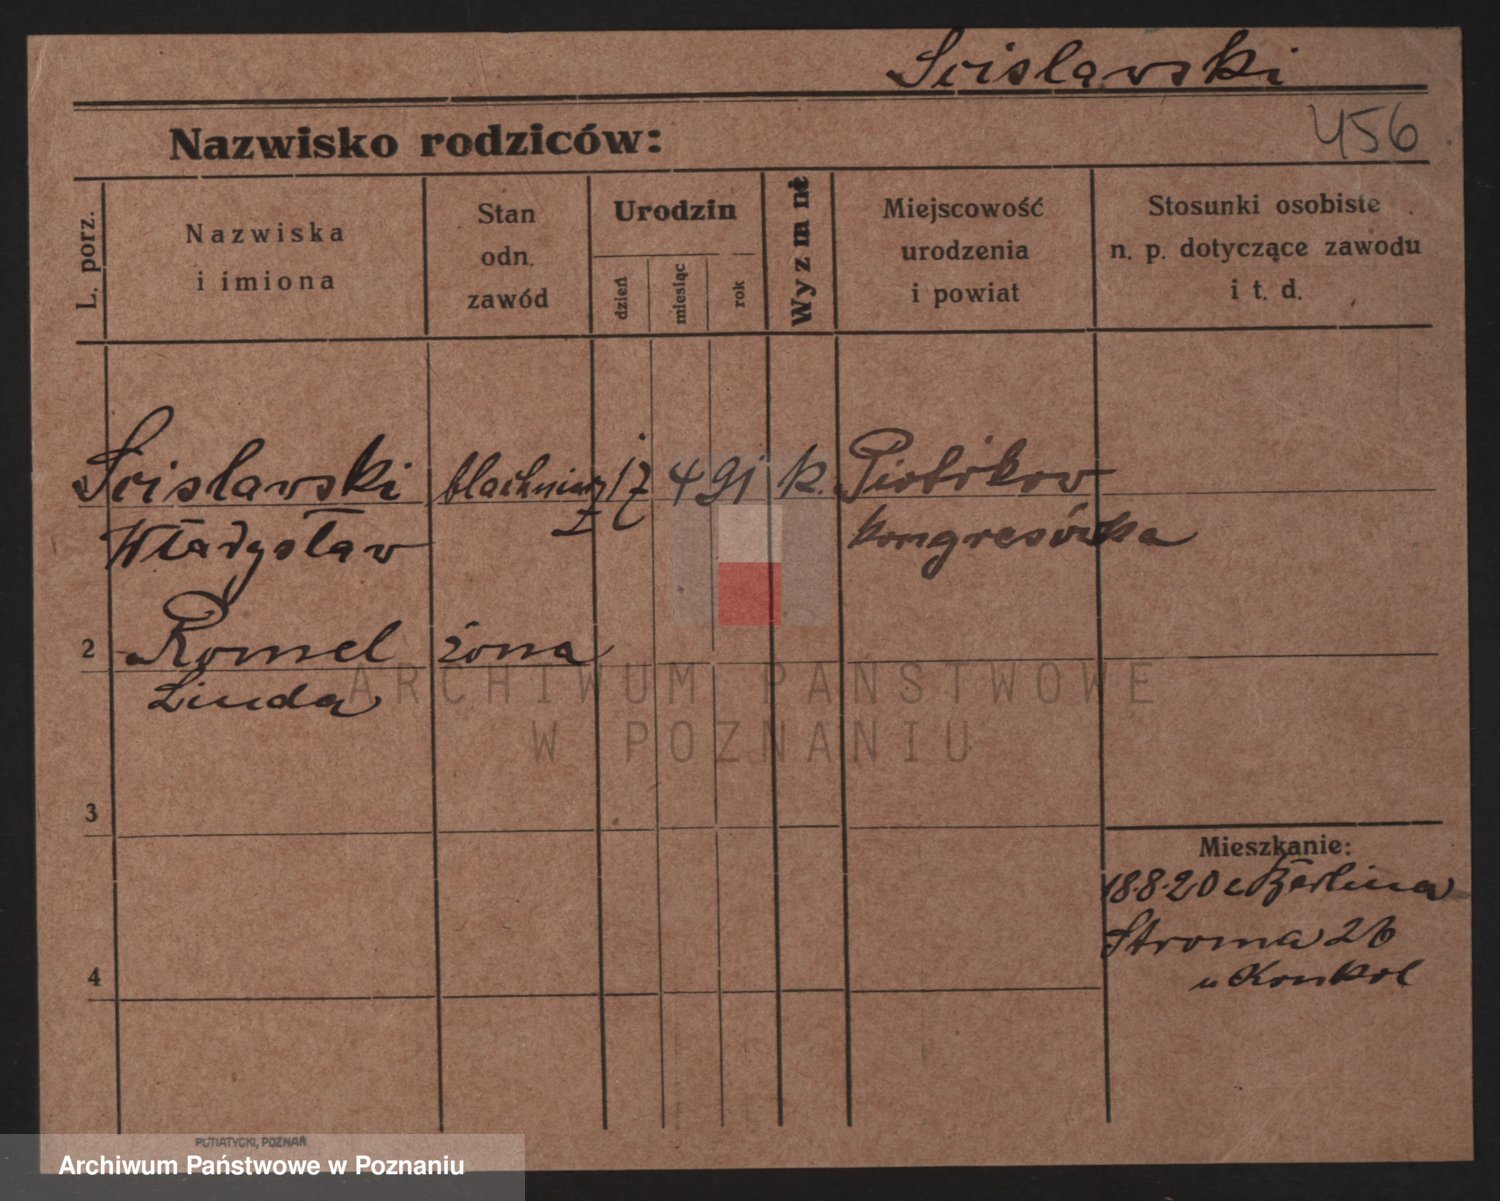 Scislavski
456
Nazwisko rodziców:
L. porz.
Nazwiska
i imiona
Stan
odn.
zawód
Urodzin
dzień
miesiąc
rok
Wyznanie
Miejscowość
urodzenia
i powiat
Stosunki osobiste
n. p. dotyczące zawodu
i t. d.
Scislavski blachniarz 17 4 91 k. Piotrkow
Władysław ż kongresówka
2 Romel żona
Linda
3
Mieszkanie:
18.8.20 z Berlina
Stroma 26
u Konkol
4
ARCHIWUM PAŃSTWOWE
W POZNANIU
PUTIATYCKI, POZNAŃ
Archiwum Państwowe w Poznaniu